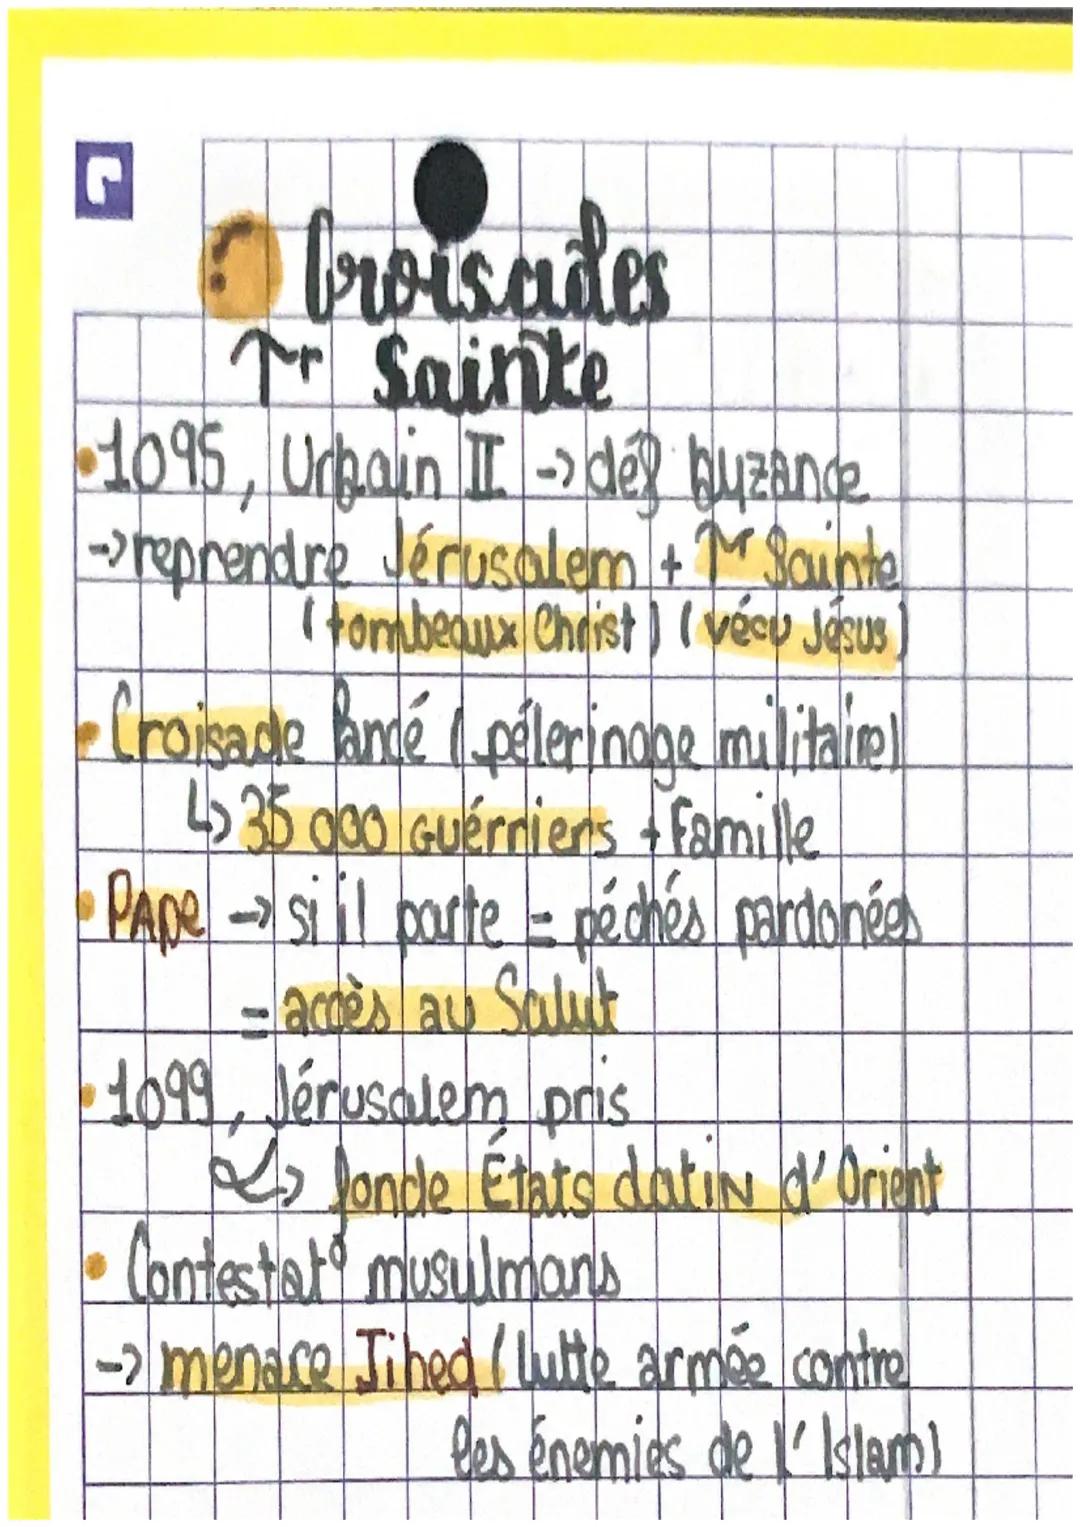 Croisades
Tr Sainte
•1095, Urbain II -> déf byzance
-> reprendre Jérusalem + Tr Sainte
(tombeaux Christ) (vécu Jésus)
• Croisade lancé (pélerinage militaire)
↳ 35 000 Guérriers + Famille
• PApe -> si il parte = péchés pardonées
= accès au Salut
•1099, Jérusalem pris
↳ fonde États latin d'Orient
• Contestat° musulmans
-> menace Jihed (lutte armée contre
les énemies de l'Islam)